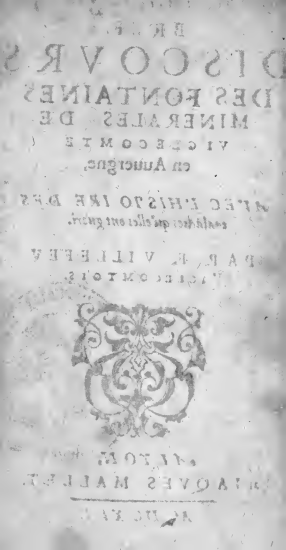 DISCOVRS
DES FONTAINES
MINERALES DE
VICLECOMTE
en Auuergne,
AVEC L'HISTOIRE DES
maladies qu'elles ont gueri.
PAR E. VILLEFEV
VICLECOMTOIS.
A LYON,
IAQVES MALLET.